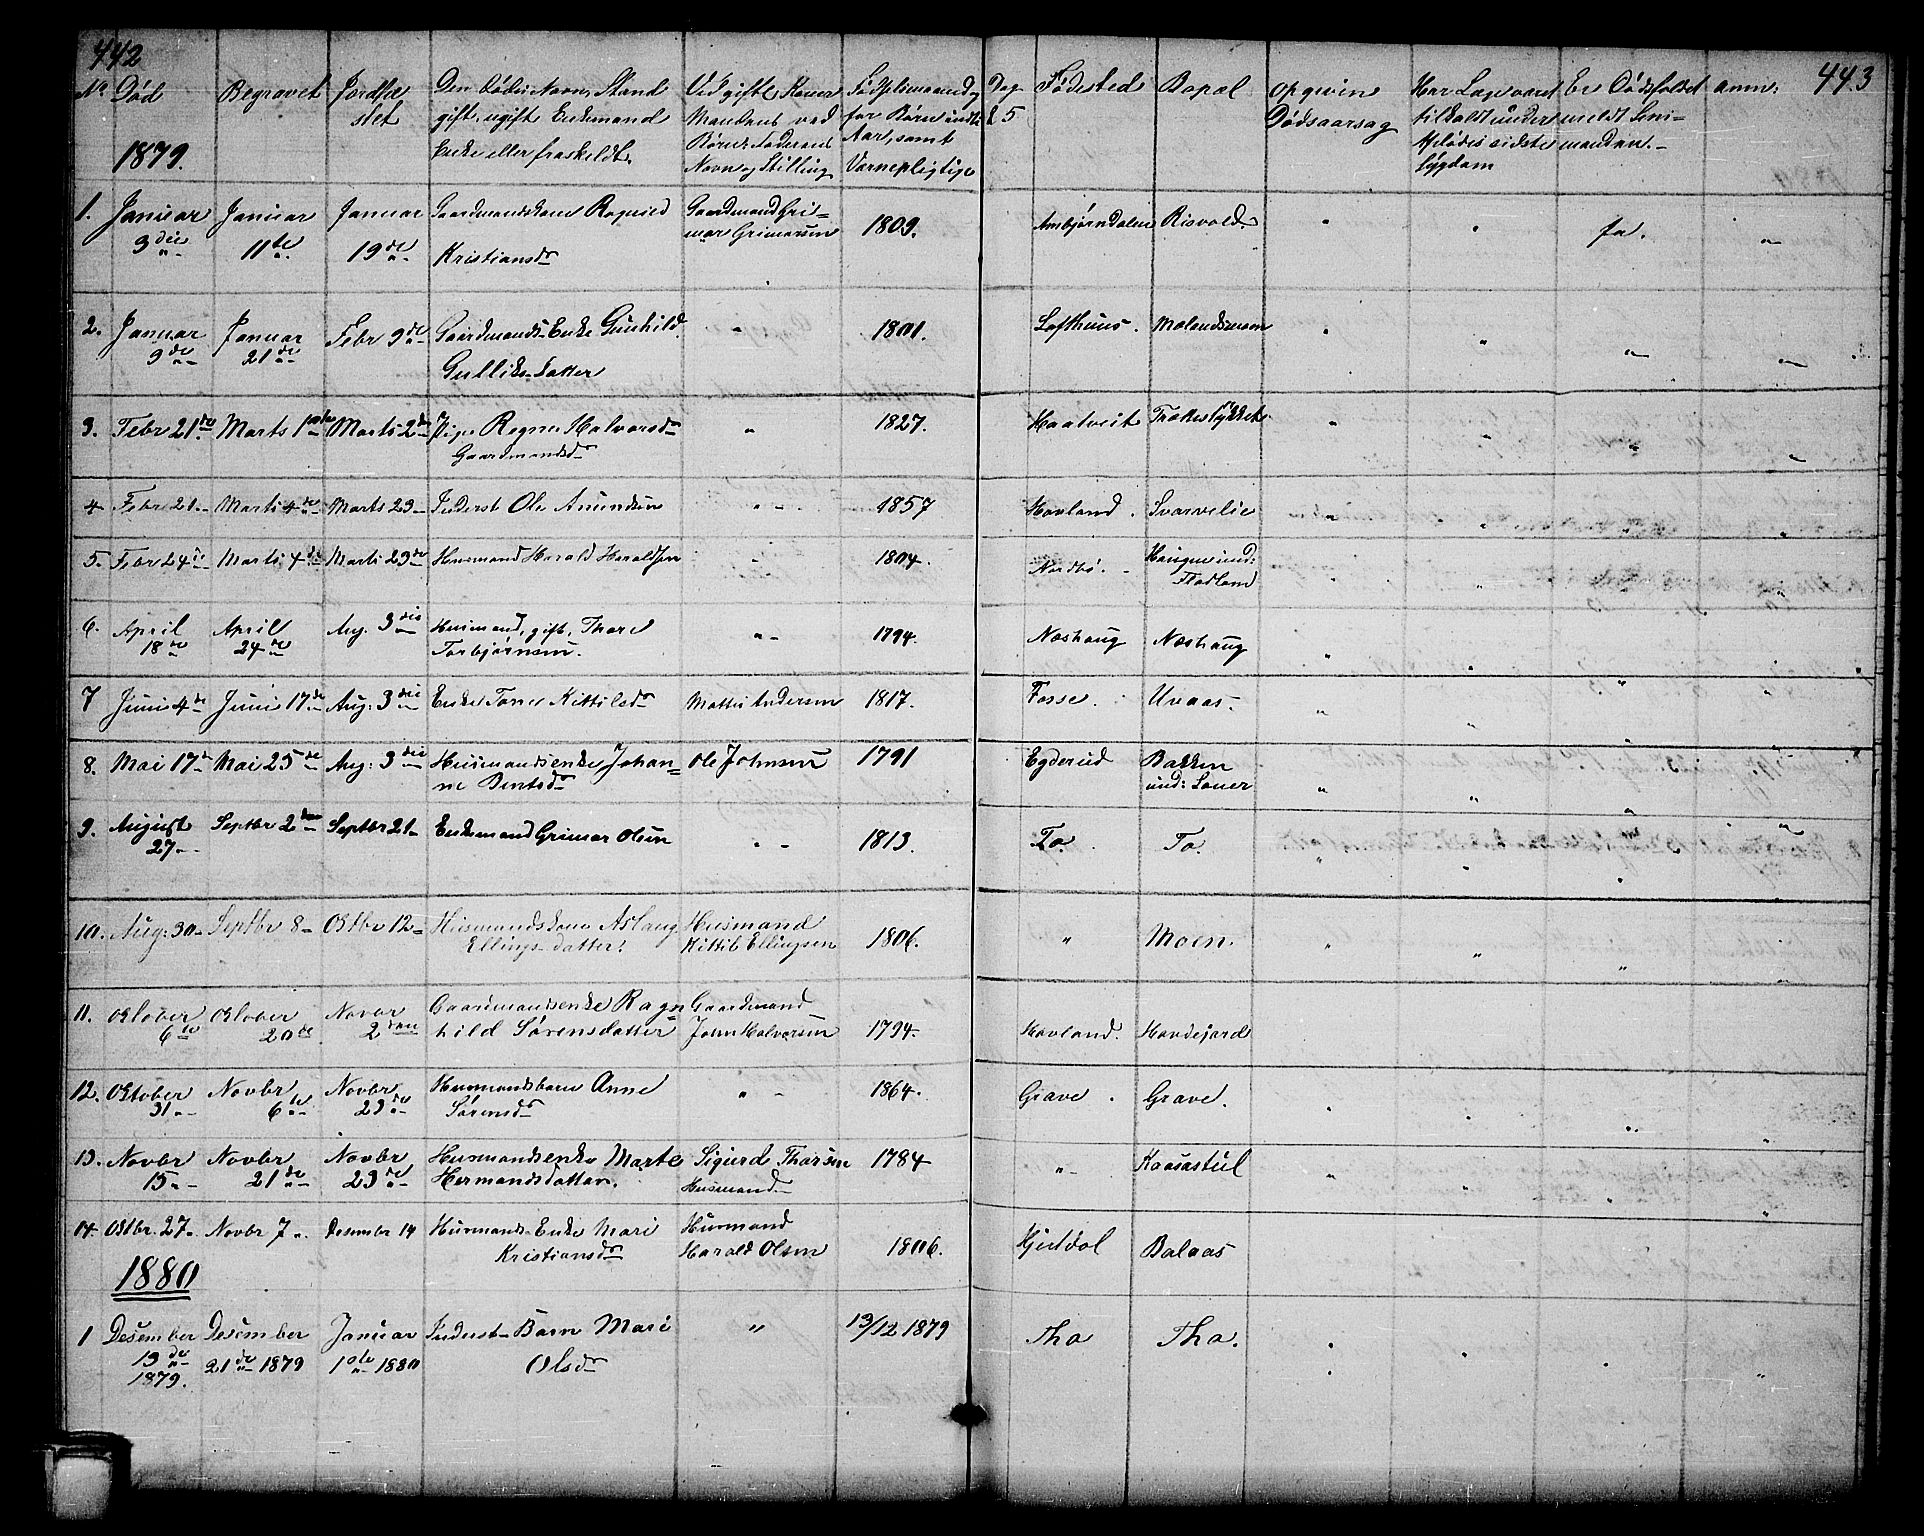 442
443
No Død Begravet Jordfæstet Den Dødes Navn, Stand gift, ugift Enkemand Enke eller fraskeldt. Ved gifte Koner Mandens ved Børn Faderens Navn og Stilling Fødselsmaand og for Børn indtil Aar, samt Værnepligtige Dag & 5 Fødested Bopæl opgiven Dødsaarsag Har Læge været tilkaldt under Afdødes sidste Sygdom Er Dødsfaldet meldt Leni=manden. anm:
1879.
1. Januar 3die Januar 11te Januar 19de Gaardmandskone Ragnild Kristiansdr Gaardmand Gri=mar Grimarsen 1809. Ambjørndalen Risvold. " " fa. "
2. Januar 9de Januar 21de Febr 9de Gaardmands-Enke Gunhild Gulliks-datter " 1801. Lofthuus. Molandsmoen " " " "
3. Febr 21de Marts 1ste Marts 2den Pige Ragne Halvorsdr Gaardmandsd " 1827. Haatveit Trækestykket " " " "
4 Febr 21 Marts 4de Marts 23 Inderst Ole Amundsen " 1857 Havland. Svarvelie " " "
5. Febr 24de Marts 4de Marts 23de Husmand Harald Haraldsen " 1804. Nordbø. Haugen und: Flatland " " "
6. April 18de April 24de Aug. 3die Husmand, gift, Thore Torbjørnsen. " 1794. Næshaug Næshaug " " " "
7 Juni 4de Juni 17de Aug: 3die Enke Tone Kittilsdr Mattis Andersen 1817. Fosse. Uvaas. " " " "
8. Mai 17de Mai 25de Aug: 3die Husmandsenke Johan=ne Bentsdr Ole Johnsen 1791 Egderud Bakken und: Sauer " " " "
9. August 27 Septbr 2den Septbr 21 Enkemand Grimar Olsen " 1813. To. To. " " " "
10. Aug: 30 Septbr 8 Oktbr 12 Husmandskone Aslaug Ellings-datter. Husmand Kittil Ellingsen 1806. " Moen. " " " "
11. Oktober 6te Oktober 20de Novbr 2den Gaardmandsenke Ragn=hild Sørensdatter Gaardmand John Halvorsen 1794. Havland. Hovdejord
12. Oktober 31 Novbr 6te Novbr 23de Husmandsbarn Anne Sørensdr " 1864. Grave. Grave. " " " "
13. Novbr 15 Novbr 21de Novbr 23de Husmandsenke Marte Hermandsdatter. Sigurd Thorsen Husmand 1784 " Kaasastul " " " "
14. Oktbr. 27 Novbr 7 Desember 14 Husmands-Enke Mari Kristiansdr Husmand Harald Olsen 1806. Hjutdal Balaas
1880
1 Desember 13de 1879. Desember 21de 1879 Januar 1ste 1880 Inderst-Barn Mari Olsdr " 13/12 1879 Tho Tho. " " " "